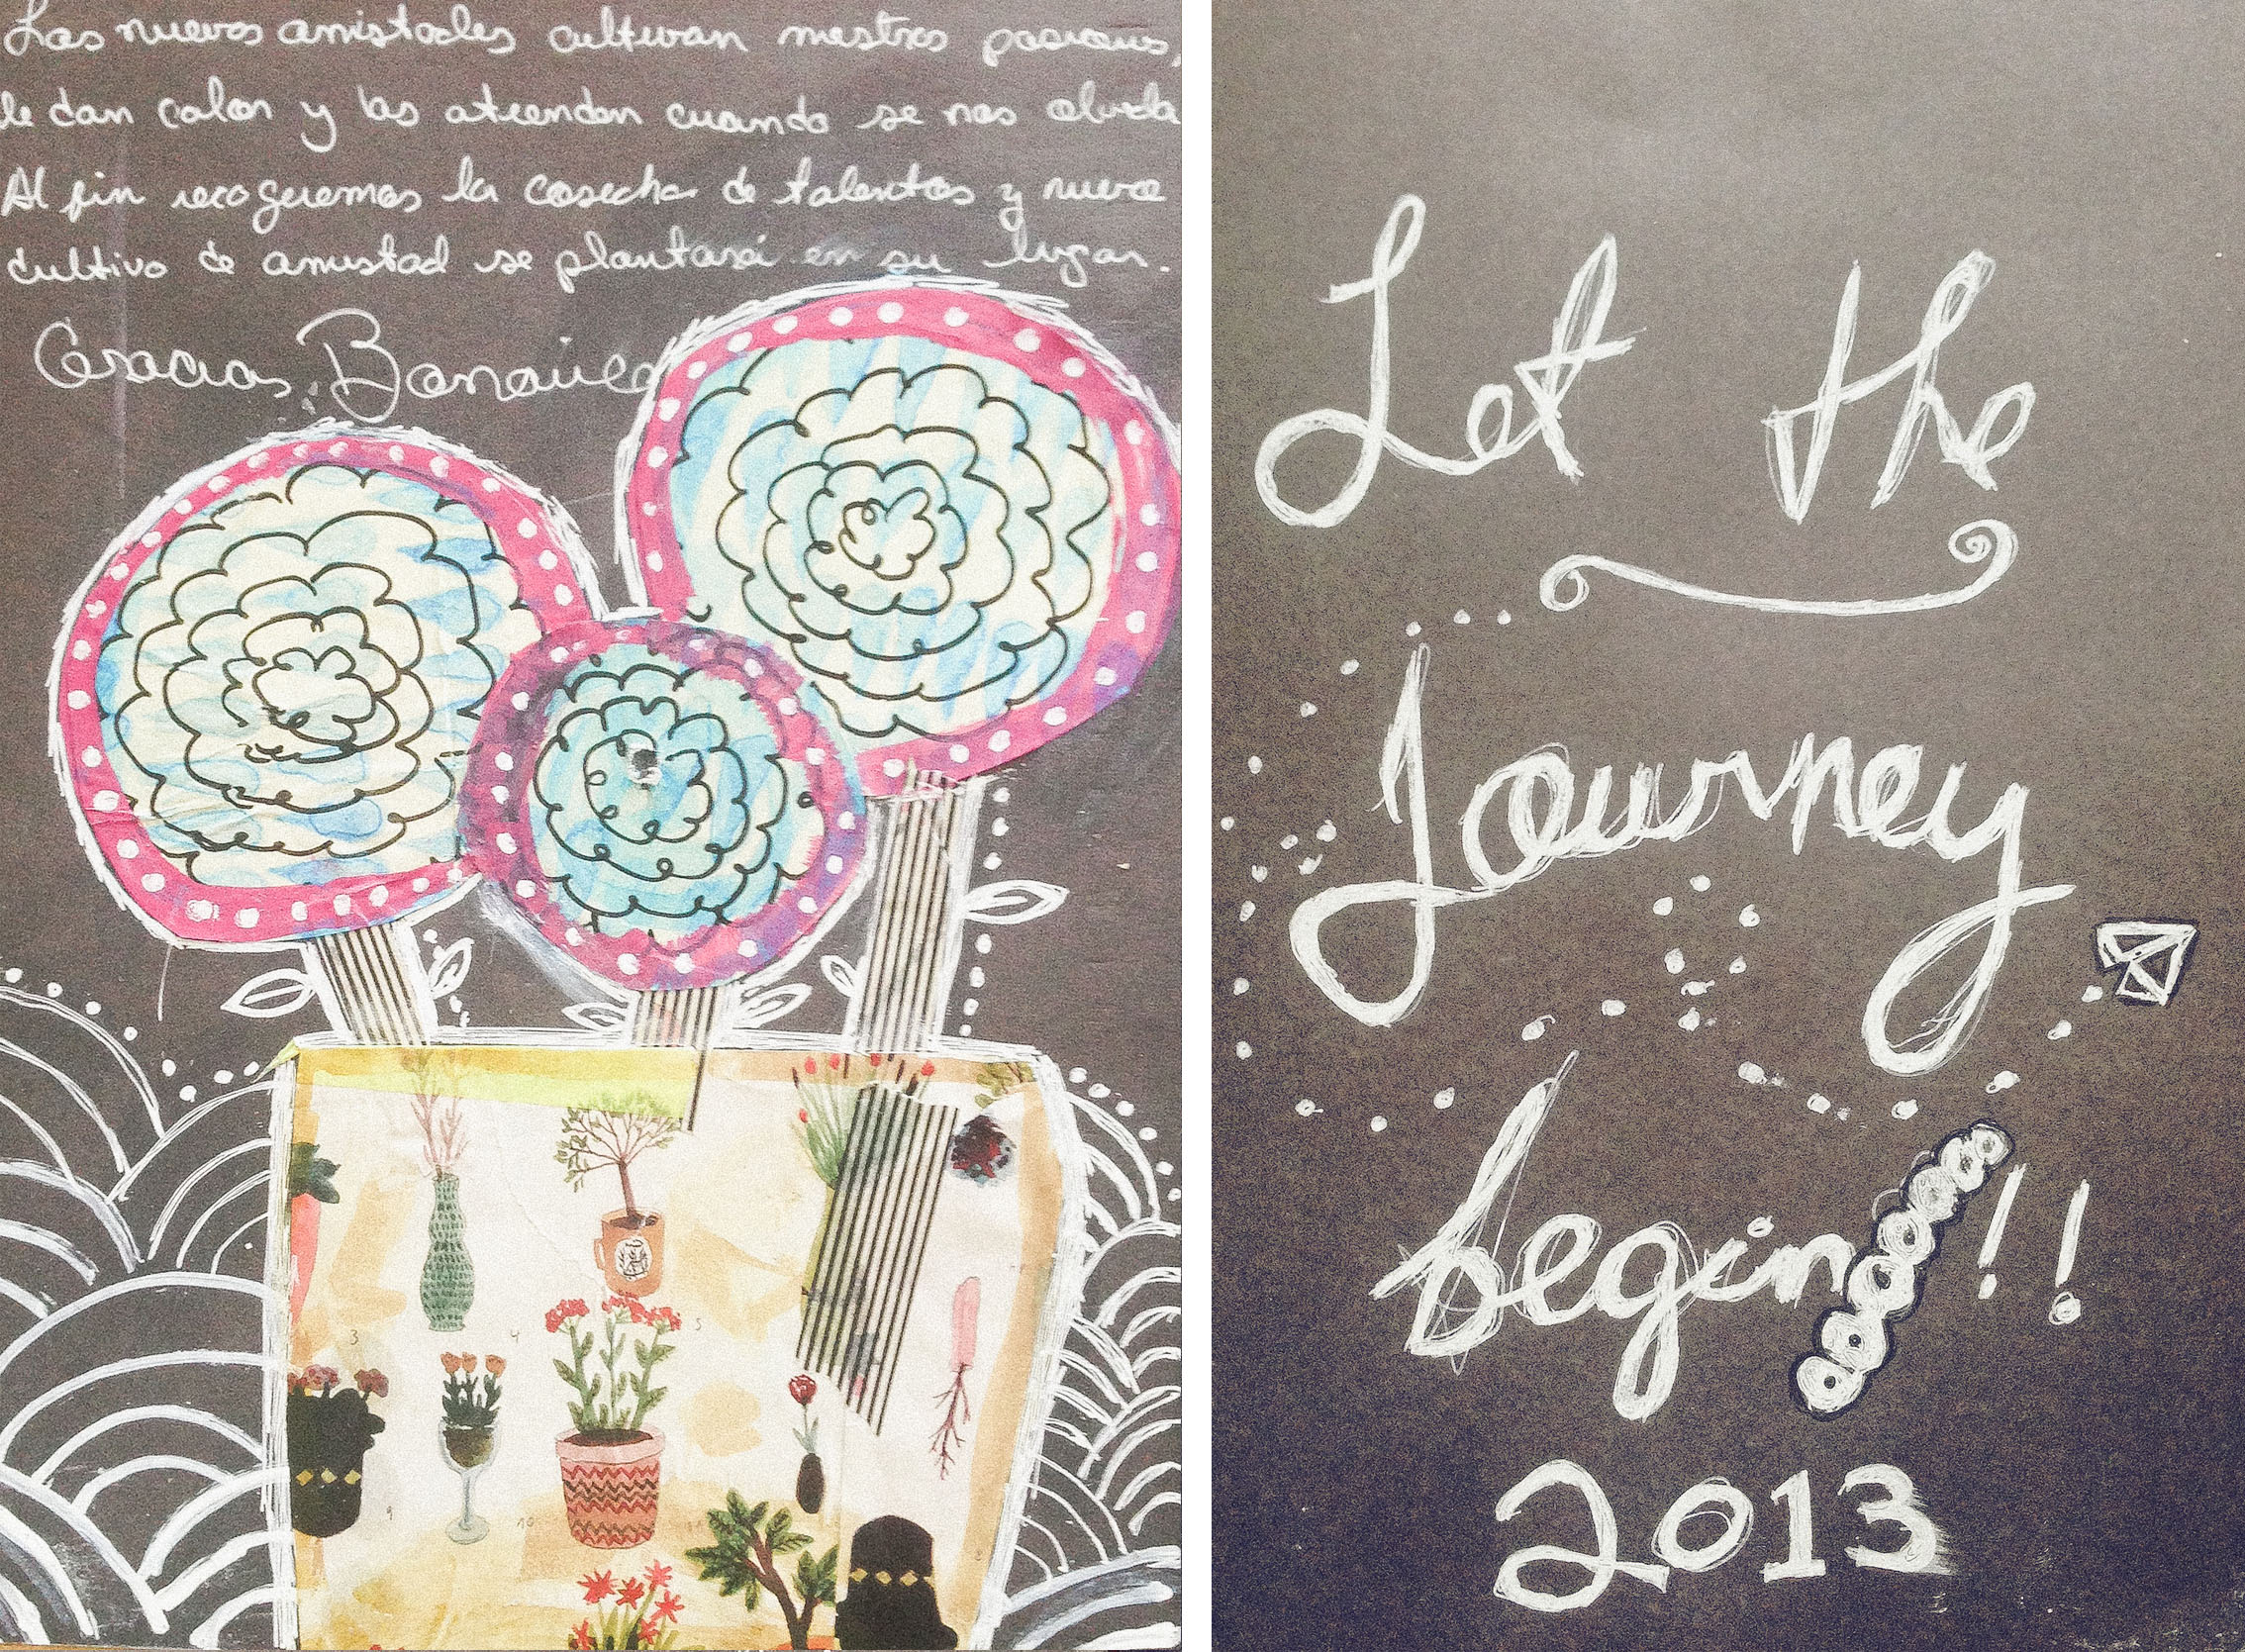 Las nuevas amistades cultivan nuestras pasiones,
le dan color y las atienden cuando se nos olvida
Al fin recogeremos la cosecha de talentos y nuevo
cultivo de amistad se plantará en su lugar.
Gracias
Let the
Journey
begin!!
2013